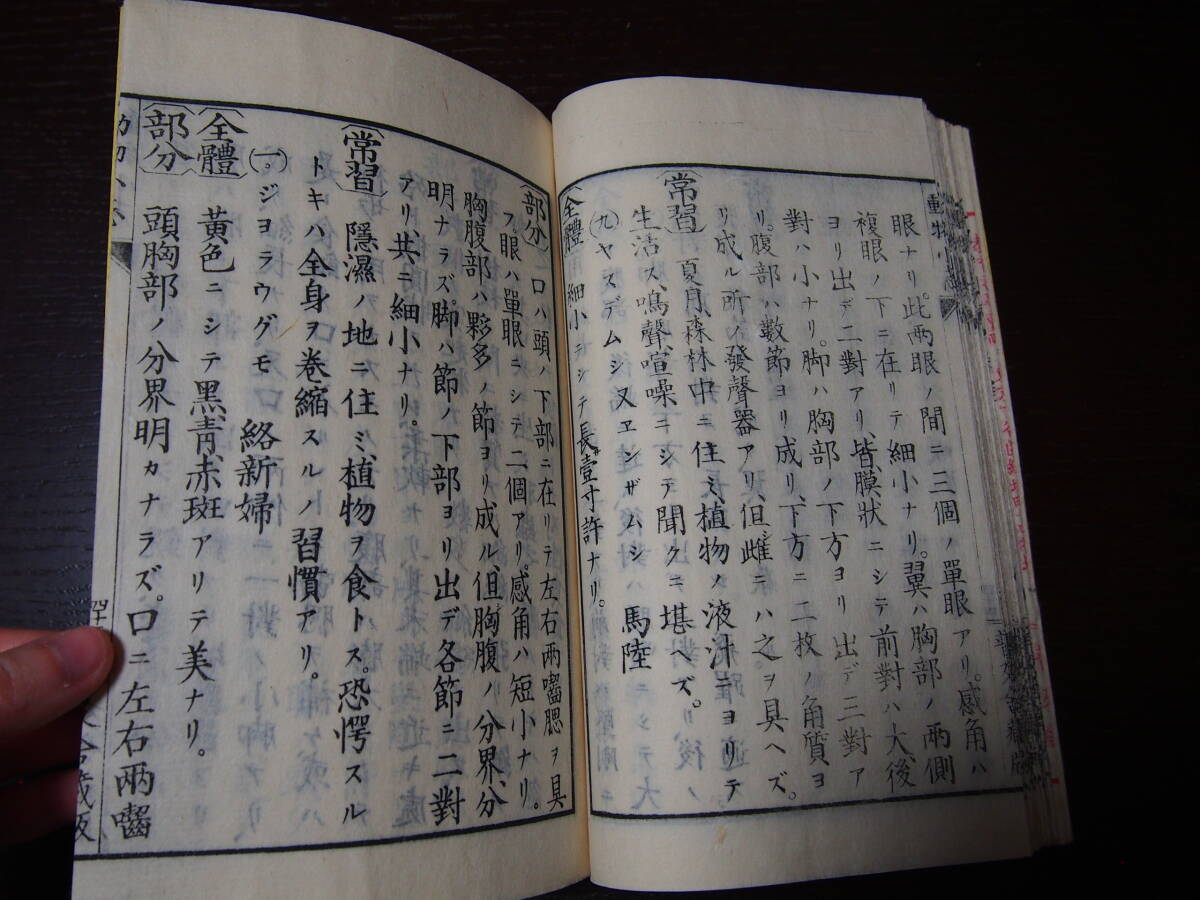 眼ナリ。此兩眼ノ間ニ三個ノ單眼アリ。感角ハ
複眼ノ下ニ在リテ細小ナリ。翼ハ胸部ノ兩側
ヨリ出デ二對アリ、皆膜狀ニシテ前對ハ大、後
對ハ小ナリ。脚ハ胸部ノ下方ヨリ出デ三對ア
リ。腹部ハ數節ヨリ成リ、下方ニ二枚ノ角質ヨ
リ成ル所ノ發聲器アリ、但雌ニハ之ヲ具ヘズ。
〔常習〕夏月、森林中ニ住ミ、植物ノ液汁ニヨリテ
生活ス、鳴聲、喧噪ニシテ聞クニ堪ヘズ。
(九)ヤスデムシ又ヱンザムシ 馬陸
〔全體〕細小ニシテ長サ壹寸許ナリ。
〔部分〕口ハ頭ノ下部ニ在リテ左右兩囓腮ヲ具
フ。眼ハ單眼ニシテ二個アリ。感角ハ短小ナリ。
胸腹部ハ夥多ノ節ヨリ成ル、但胸腹ノ分界、分
明ナラズ。脚ハ節ノ下部ヨリ出デ各節ニ二對
アリ、共ニ細小ナリ。
〔常習〕隱濕ノ地ニ住ミ、植物ヲ食トス。恐愕スル
トキハ全身ヲ卷縮スルノ習慣アリ。
(一)ジヨラウグモ 絡新婦
〔全體〕黃色ニシテ黑靑、赤斑アリテ美ナリ。
〔部分〕頭胸部ノ分界明カナラズ。口ニ左右兩囓